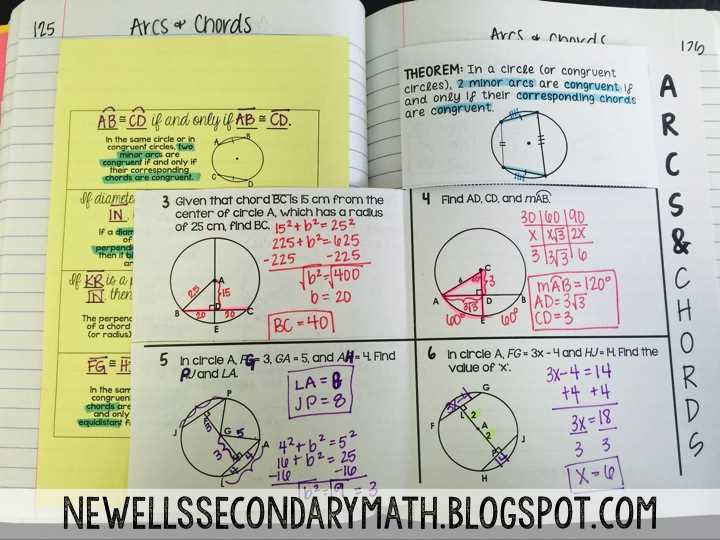 125
Arcs & Chords
AB ≅ CD if and only if AB ≅ CD.
In the same circle or in
congruent circles, two
minor arcs are
congruent if and only if
their corresponding
chords are congruent.
A
B
C
D
If diamete
IN
If a diam
of
perpend
then it bi
an
If KR is a p
IN, then
The perpend
of a chord
(or radius)
FG ≅ H
In the sam
congruen
chords are
and only
equidistant f
Arcs & Chords
126
THEOREM: In a circle (or congruent
circles), 2 minor arcs are congruent if
and only if their corresponding chords
are congruent.
ARCS & CHORDS
3 Given that chord BC is 15 cm from the
center of circle A, which has a radius
of 25 cm, find BC.
15² + b² = 25²
225 + b² = 625
-225 -225
√b² = √400
b = 20
BC = 40
A
25
15
D
B
20
20
C
E
4 Find AD, CD, and mAB.
30 60 90
X X√3 2X
3 3√3 6
mAB = 120°
AD = 3√3
CD = 3
C
6
3
A
D
B
3√3
60°
E
60°
5 In circle A, FG = 3, GA = 5, and AH = 4. Find
PJ and LA.
LA = 8
JP = 8
4² + b² = 5²
16 + b² = 25
-16 -16
√b² = √9 = 3
P
J
G
5
A
3
L
6 In circle A, FG = 3x - 4 and HJ = 14. Find the
value of 'x'.
3x-4 = 14
+4 +4
3x = 18
3 3
X = 6
G
F
L
2
A
2
J
H
NEWELLSSECONDARYMATH.BLOGSPOT.COM